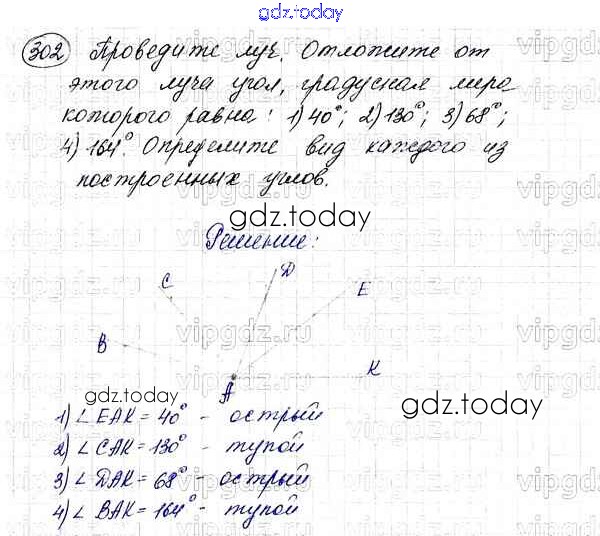 gdz.today
302 Проведите луч. Отложите от
этого луча угол, градусная мера
которого равна: 1) 40°; 2) 130°; 3) 68°;
4) 164°. Определите вид каждого из
построенных углов.
gdz.today
Решение:
C D E
B
A K
gdz.today
gdz.today
1) ∠ EAK = 40° - острый
2) ∠ CAK = 130° - тупой
3) ∠ DAK = 68° - острый
4) ∠ BAK = 164° - тупой